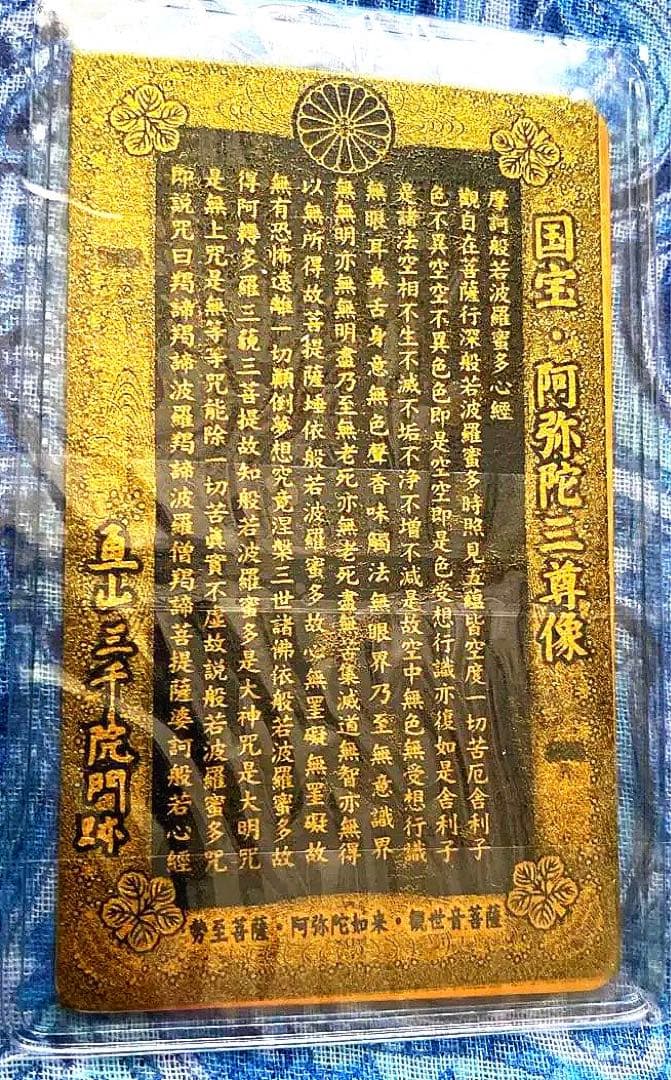 国宝・阿弥陀三尊像
摩訶般若波羅蜜多心經
觀自在菩薩行深般若波羅蜜多時照見五蘊皆空度一切苦厄舎利子
色不異空空不異色色即是空空即是色受想行識亦復如是舎利子
是諸法空相不生不滅不垢不浄不増不減是故空中無色無受想行識
無眼耳鼻舌身意無色聲香味觸法無眼界乃至無意識界
無無明亦無無明盡乃至無老死亦無老死盡無苦集滅道無智亦無得
以無所得故菩提薩埵依般若波羅蜜多故心無罣礙無罣礙故
無有恐怖遠離一切顛倒夢想究竟涅槃三世諸佛依般若波羅蜜多故
得阿耨多羅三藐三菩提故知般若波羅蜜多是大神咒是大明咒
是無上咒是無等等咒能除一切苦真實不虚故説般若波羅蜜多咒
即説咒曰羯諦羯諦波羅羯諦波羅僧羯諦菩提薩婆訶般若心經
魚山三千院門跡
勢至菩薩・阿弥陀如来・観世音菩薩